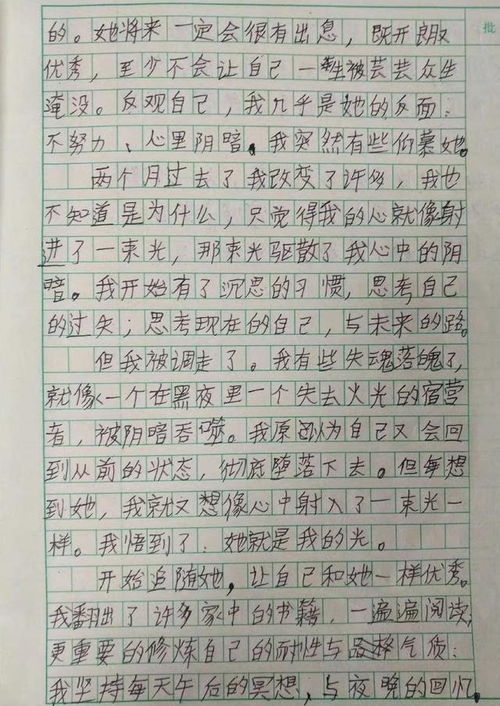 批
的。她将来一定会很有出息，既开朗又
优秀，至少不会让自己一生被芸芸众生
淹没。反观自己，我几乎是她的反面：
不努力、心里阴暗。我突然有些仰慕她。
两个月过去了我改变了许多，我也
不知道是为什么，只觉得我的心就像射
进了一束光，那束光驱散了我心中的阴
暗。我开始有了沉思的习惯，思考自己
的过失；思考现在的自己，与未来的路。
但我被调走了。我有些失魂落魄了，
就像一个在黑夜里一个失去火光的宿营
者，被阴暗吞噬。我原以为自己又会回
到从前的状态，彻底堕落下去。但每想
到她，我就又想像心中射入了一束光一
样。我悟到了：她就是我的光。
开始追随她，让自己和她一样优秀。
我翻出了许多家中的书籍，一遍遍阅读，
更重要的修炼自己的耐性与品格气质：
我坚持每天午后的冥想，与夜晚的回忆，